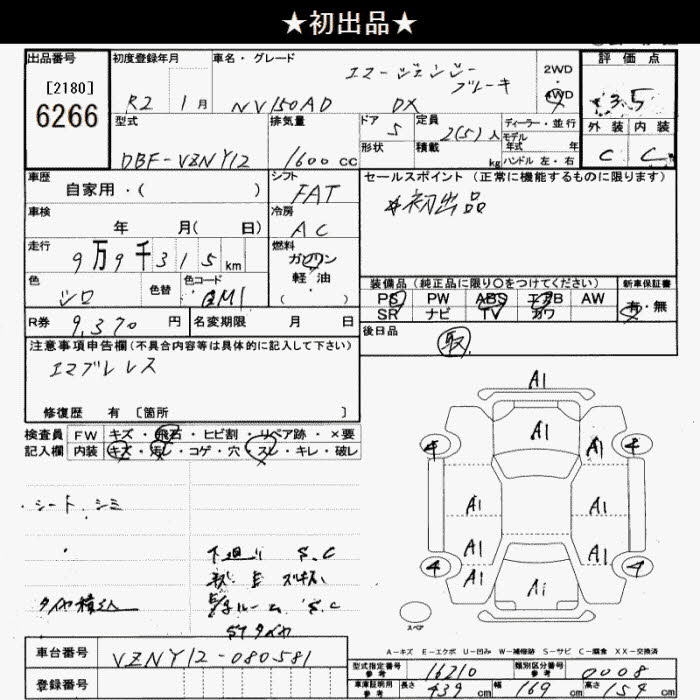 ★初出品★
出品番号
[2180]
6266
初度登録年月
R2 1月
車名・グレード
エマージェンシー
ブレーキ
NV150AD DX
2WD
・
4WD
評価点
3.5
外装 内装
C C
型式
DBF-VZNY12
排気量
1600cc
ドア 5
形状
定員 2(5)人
積載 kg
ディーラー・並行
モデル
年式 年
ハンドル 左・右
車歴
自家用・( )
シフト
FAT
セールスポイント(正常に機能するものに限ります)
*初出品
車検
年 月( 日)
冷房
AC
走行
9万9千315km
燃料
ガソリン
軽油
( )
色
シロ
色替
色コード
QM1
装備品(純正品に限り○をつけてください)
PS PW ABS エアB AW
SR ナビ TV カワ
新車保証書
有・無
R券 9,370円
名変期限 月 日
後日品
取
注意事項申告欄(不具合内容等は具体的に記入して下さい)
エマブレレス
修復歴 有 [箇所 ]
検査員
記入欄
FW キズ・飛石・ヒビ割・リペア跡・×要
内装 キズ・汚レ・コゲ・穴・スレ・キレ・破レ
・シート・シミ
下廻り S.C
S.C
タイヤ積込み
STタイヤ
A1
A1
4 A1 A1 4
A1 A1
A1 A1
4 A1 A1 A1 4
スペア
A-キズ E-エクボ U-凹み W-補修跡 S-サビ C-腐食 XX-交換済
車台番号
VZNY12-080581
登録番号
型式指定番号
参考
16210
類別区分番号
参考
0008
車庫証明用
参考
長さ 439cm 幅 169cm 高さ 154cm